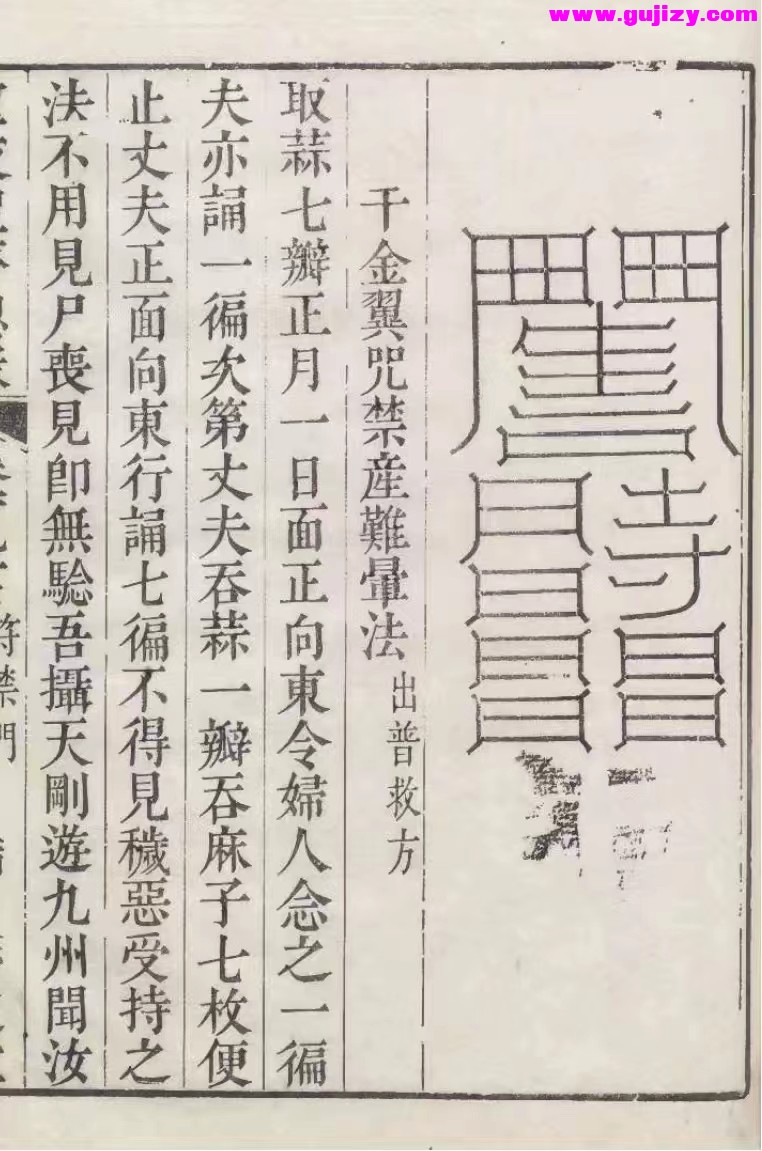 www.gujizy.com
千金翼咒禁産難暈法 出普救方
取蒜七瓣正月一日面正向東令婦人念之一徧
夫亦誦一徧次第丈夫吞蒜一瓣吞麻子七枚便
止丈夫正面向東行誦七徧不得見穢惡受持之
法不用見尸喪見即無驗吾攝天剛遊九州聞汝
符禁門